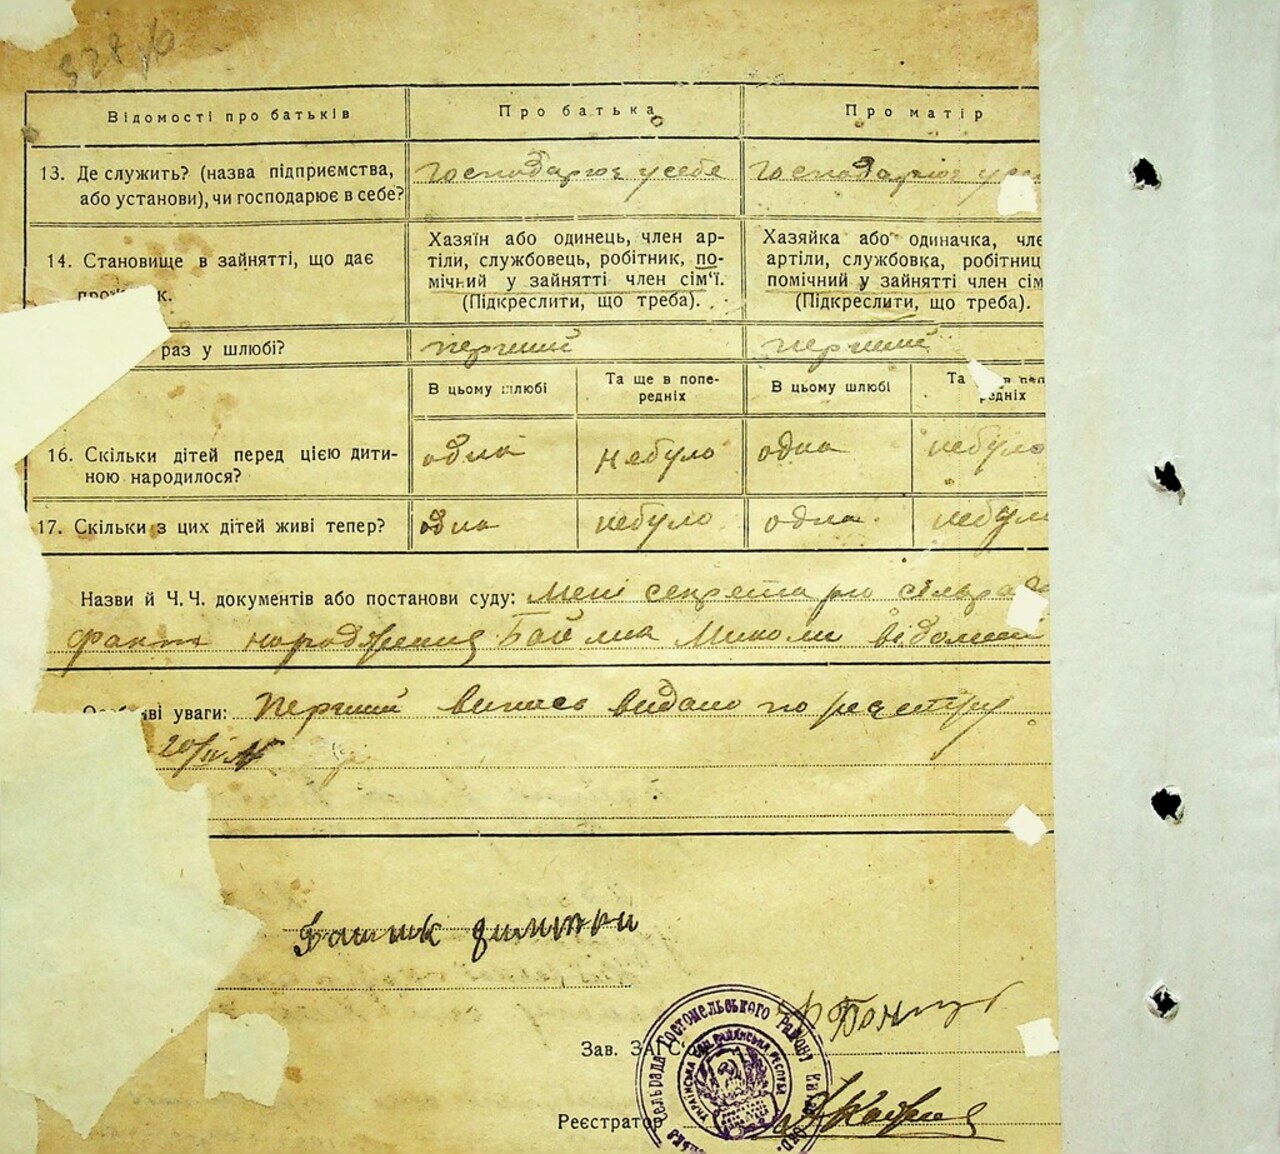 328
Відомості про батьків
Про батька
Про матір
13. Де служить? (назва підприємства,
або установи), чи господарює в себе?
господарює у себе
господарює у
14. Становище в зайнятті, що дає
Хазяїн або одинець, член ар-
тілі, службовець, робітник, по-
мічний у зайнятті член сім'ї.
(Підкреслити, що треба).
Хазяйка або одиначка, чле
артіли, службовка, робітниц
помічний у зайнятті член сім
(Підкреслити, що треба).
раз у шлюбі?
перший
перший
В цьому шлюбі
Та ще в попе-
редніх
В цьому шлюбі
Та в поп
редніх
16. Скільки дітей перед цією дити-
ною народилося?
одна
небуло
одна
небуло
17. Скільки з цих дітей живі тепер?
одна
небуло
одна
небул
Назви й Ч. Ч. документів або постанови суду: Мені секретарю сільрад
факт народження Миколи відомий
уваги: Перший випись видано по реєстру
20/IV
Зав. ЗАГС
Реєстратор
ельрада Гостомельського району
УКРАЇНСЬКА СОЦ. РАДЯНСЬКА РЕСПУБ